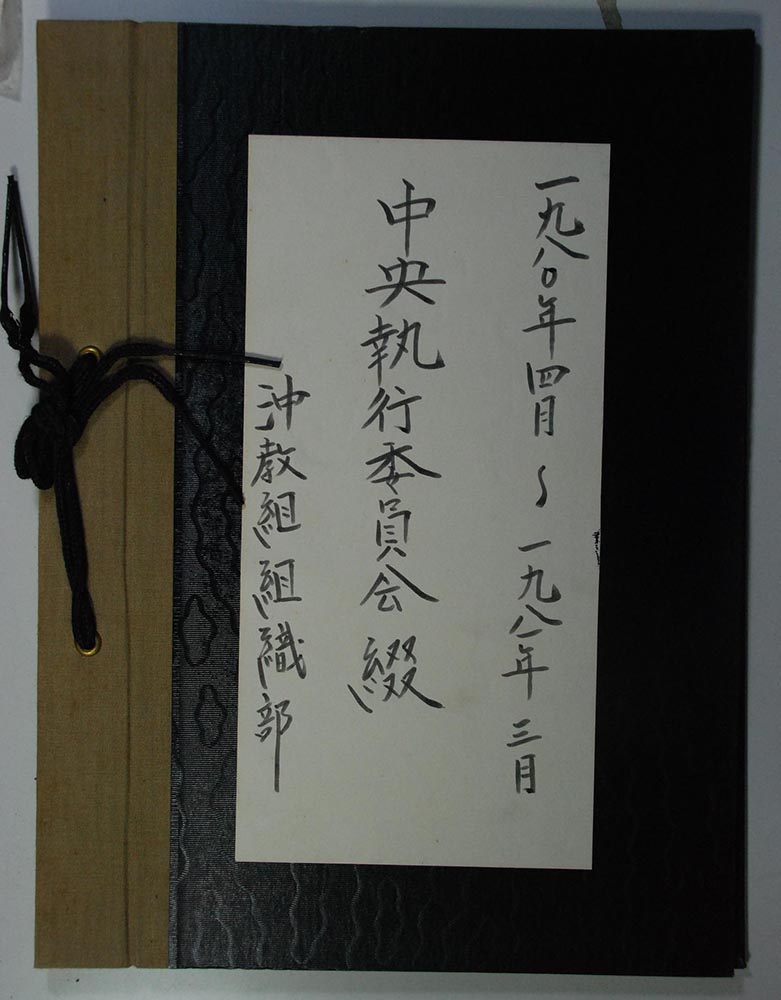 一九八〇年四月〜一九八一年三月
中央執行委員会綴
沖教組組織部